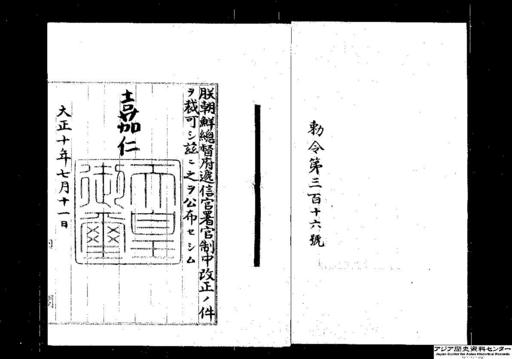 勅令第三百十六號
朕朝鮮總督府遞信官署官制中改正ノ件
ヲ裁可シ茲ニ之ヲ公布セシム
嘉仁
天皇
御璽
大正十年七月十一日
アジア歴史資料センター
Japan Center for Asian Historical Records